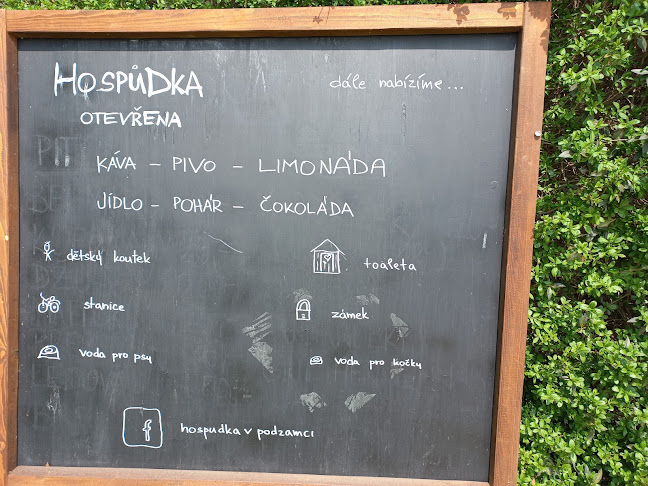 HOSPŮDKA
OTEVŘENA
dále nabízíme...
KÁVA - PIVO - LIMONÁDA
JÍDLO - POHÁR - ČOKOLÁDA
dětský koutek
toaleta
stanice
zámek
voda pro psy
voda pro kočky
f hospudka v podzamci